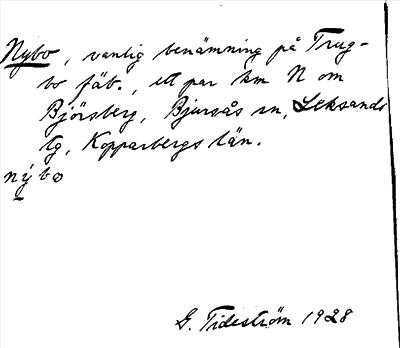 Nybo, vanlig benämning på Trug-
bo fäb., ett par km N om
Björsberg, Bjursås sn, Leksands
tg, Kopparbergs län.
nýbo
G. Tideström 1928